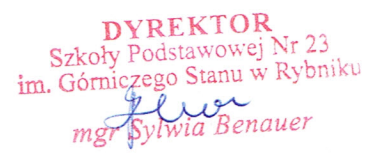 DYREKTOR
Szkoły Podstawowej Nr 23
im. Górniczego Stanu w Rybniku
mgr Sylwia Benauer